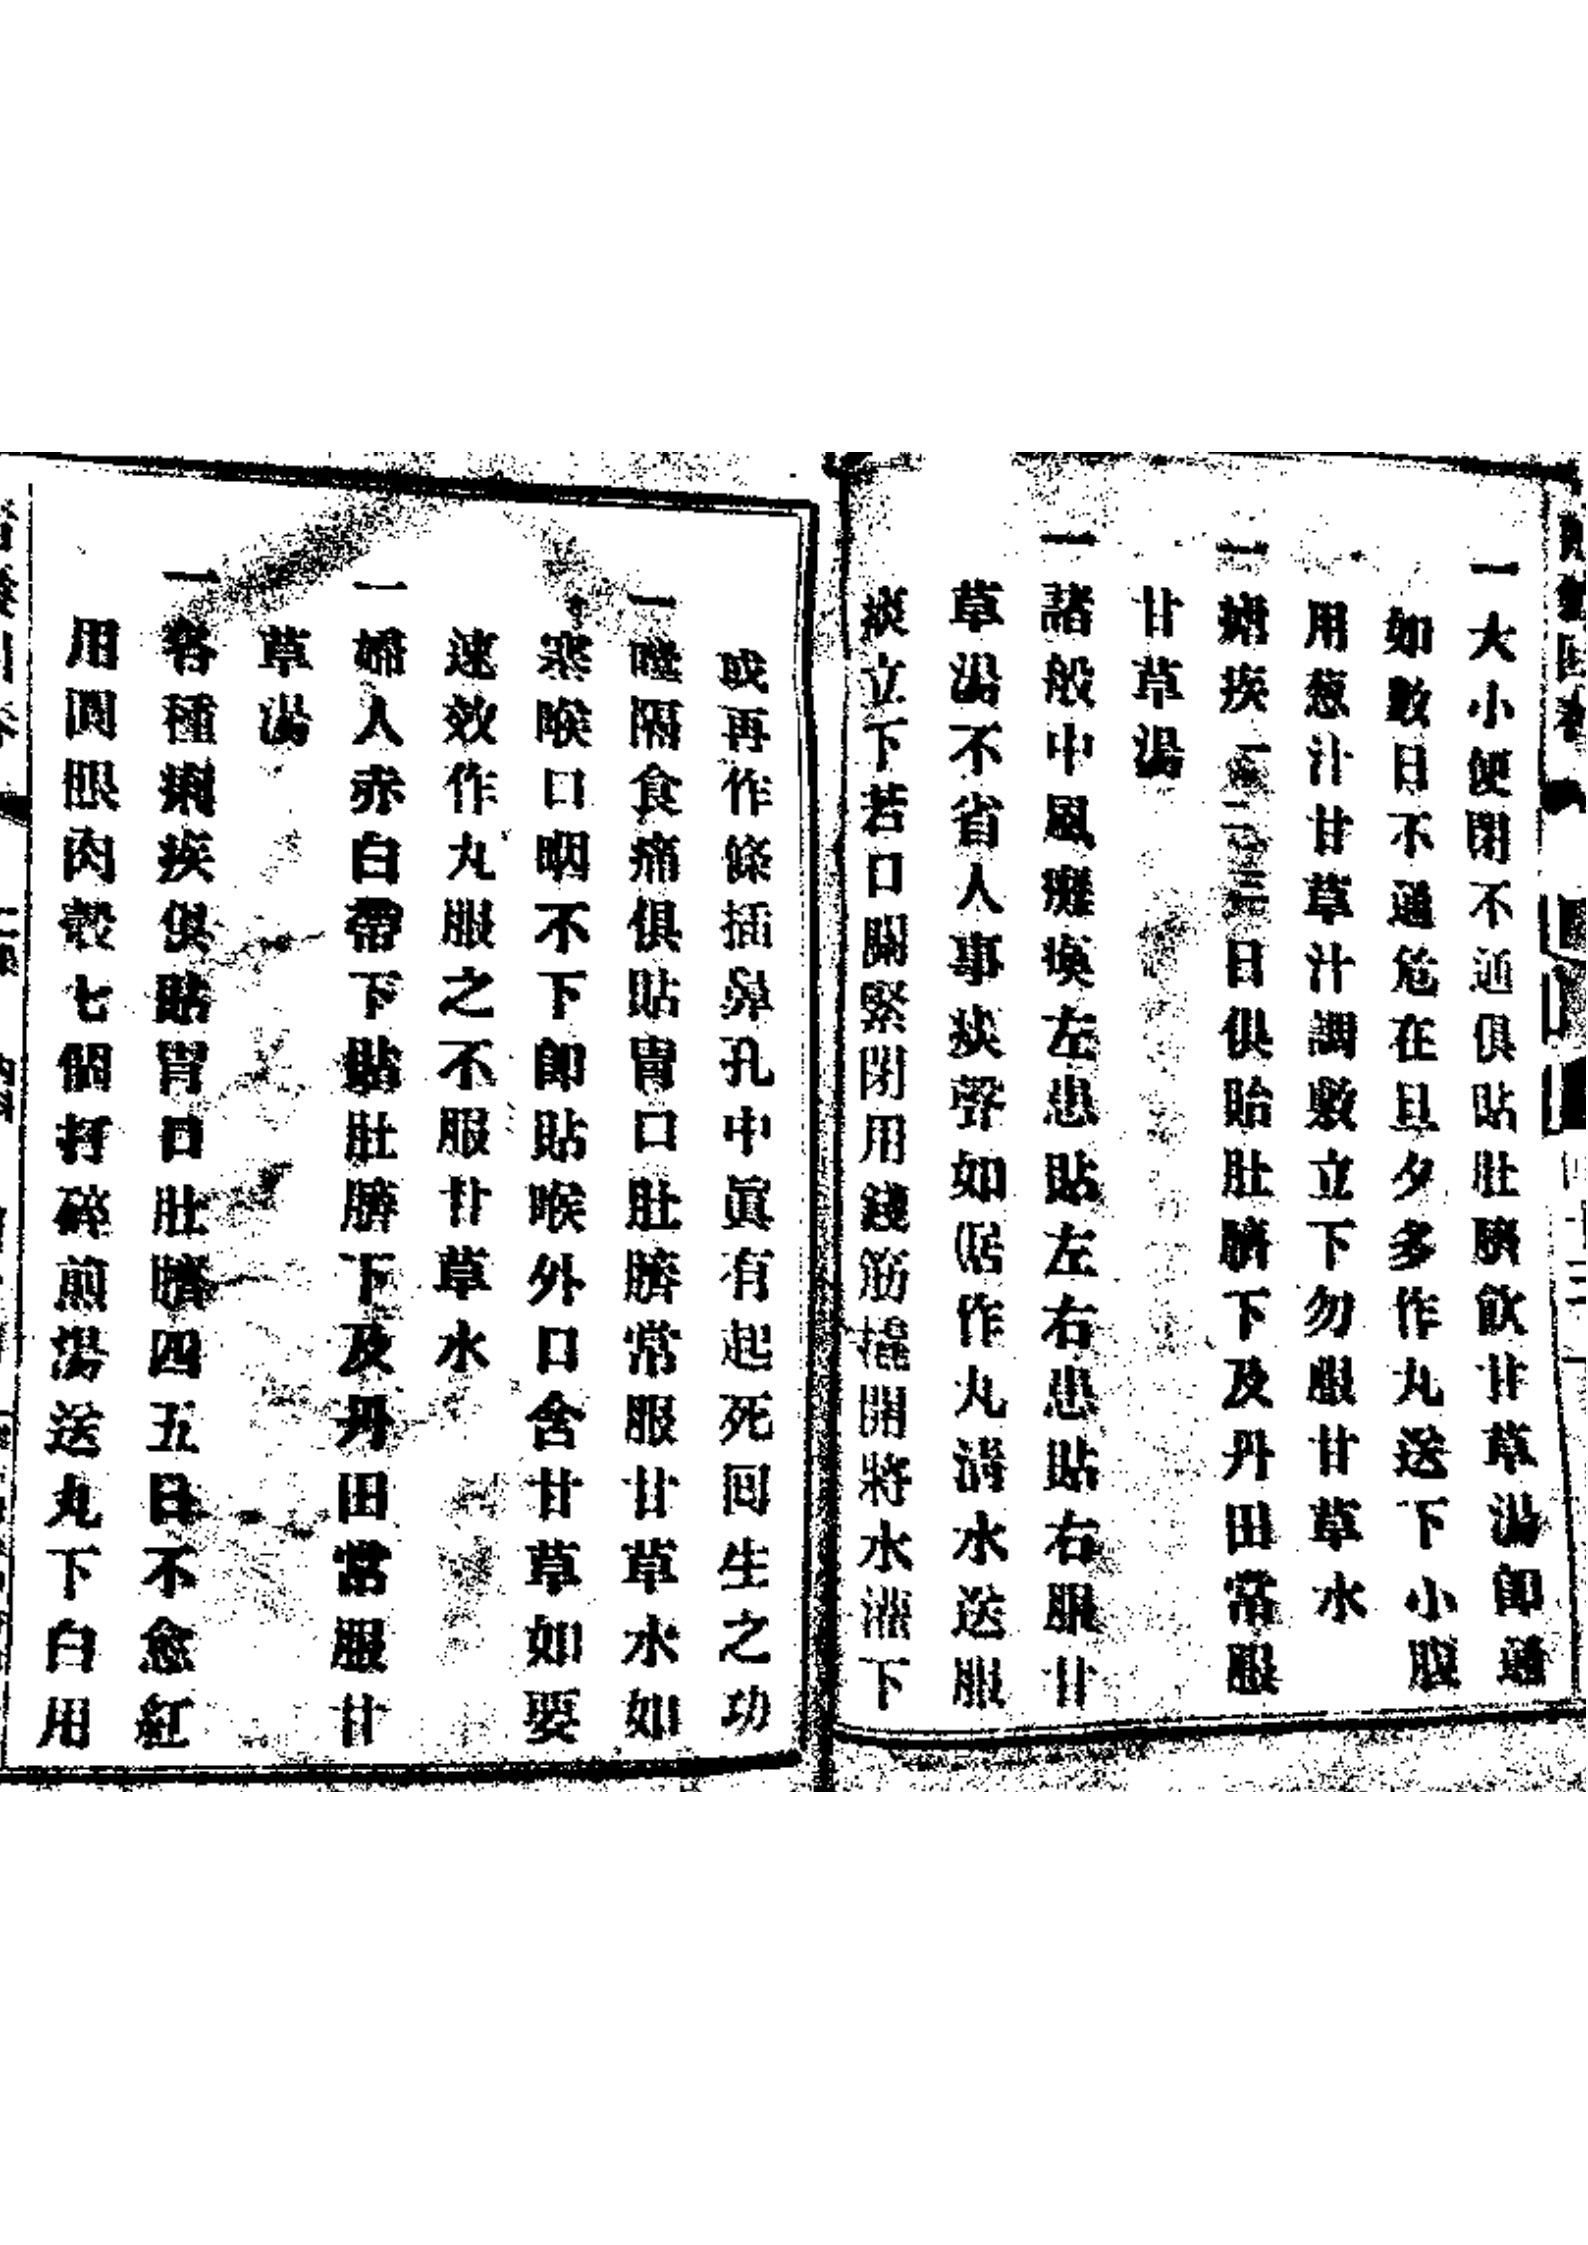 一大小便閉不通俱貼肚臍飲甘草湯卽通
如數日不通危在旦夕多作丸送下小腹
用葱汁甘草汁調敷立下勿服甘草水
一瘧疾一二三日俱貼肚臍下及丹田常服
甘草湯
一諸般中風癱瘓左患貼左右患貼右服甘
草湯不省人事痰聲如鋸作丸清水送服
痰立下若口關緊閉用鐵筋撬開將水灌下
或再作條插鼻孔中眞有起死回生之功
一噎隔食痛俱貼胃口肚臍常服甘草水如
寒喉口咽不下卽貼喉外口含甘草如要
速效作丸服之不服甘草水
一婦人赤白帶下貼肚臍下及丹田常服甘
草湯
一各種痢疾俱貼胃口肚臍四五日不愈紅
用圓眼肉殼七個打碎煎湯送丸下白用